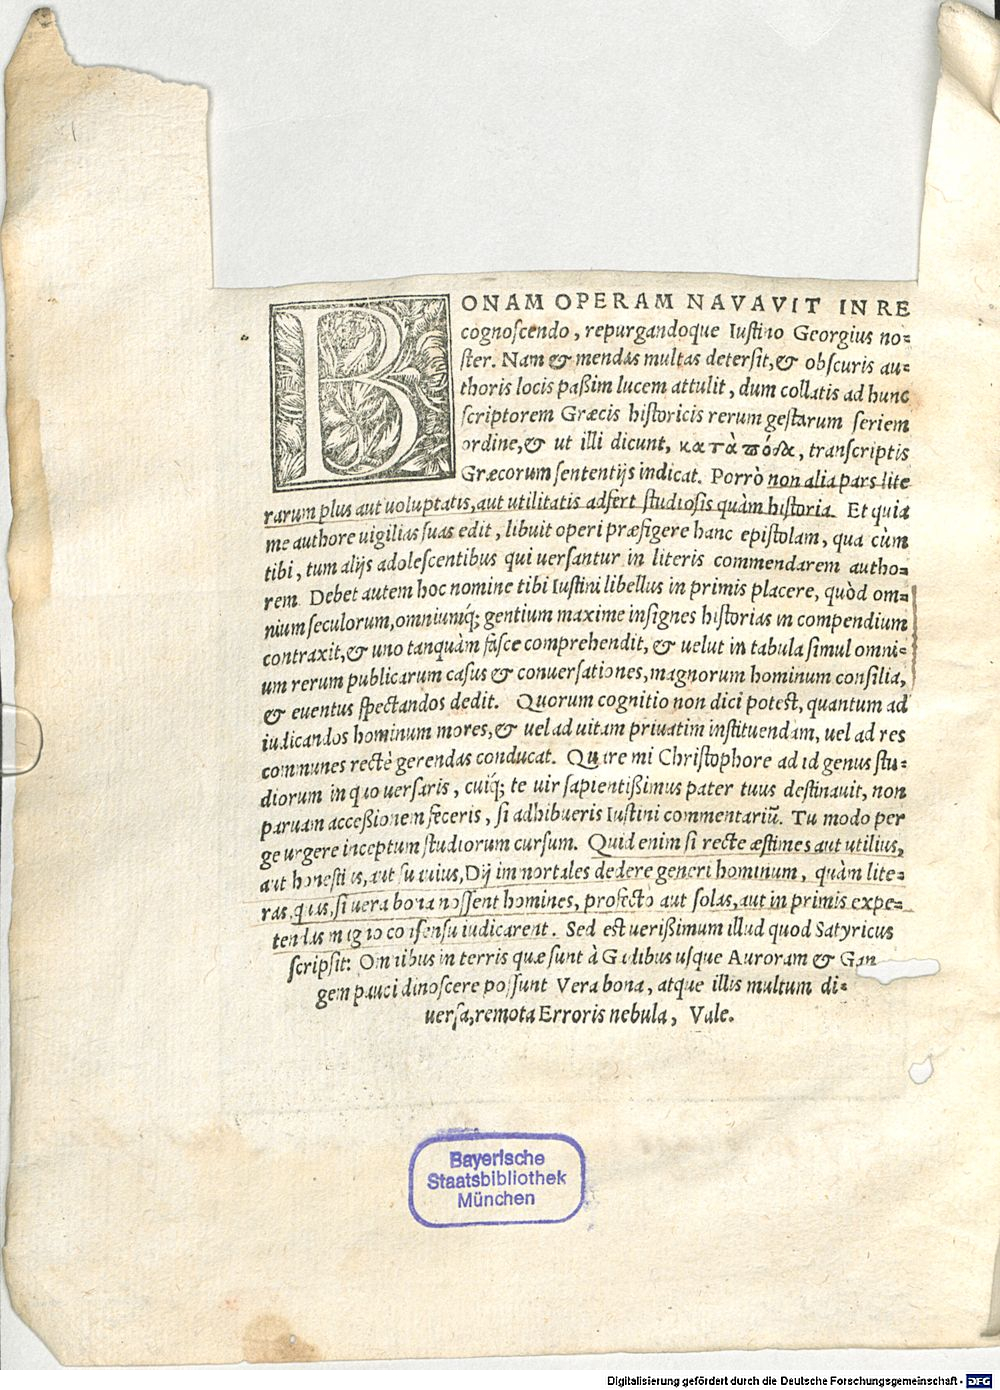 BONAM OPERAM NAVAVIT IN RE
cognoscendo, repurgandoque Iustino Georgius no=
ster. Nam & mendas multas detersit, & obscuris au=
thoris locis paßim lucem attulit, dum collatis ad hunc
scriptorem Græcis historicis rerum gestarum seriem
ordine, & ut illi dicunt, κατὰ πόδα, transcriptis
Græcorum sententijs indicat. Porrò non alia pars lite
rarum plus aut uoluptatis, aut utilitatis adfert studiosis quàm historia. Et quia
me authore uigilias suas edit, libuit operi præfigere hanc epistolam, qua cùm
tibi, tum alijs adolescentibus qui uersantur in literis commendarem autho=
rem. Debet autem hoc nomine tibi Iustini libellus in primis placere, quòd om=
nium seculorum, omniumq́; gentium maxime insignes historias in compendium
contraxit, & uno tanquàm fasce comprehendit, & uelut in tabula simul omni=
um rerum publicarum casus & conuersationes, magnorum hominum consilia,
& euentus spectandos dedit. Quorum cognitio non dici potest, quantum ad
iudicandos hominum mores, & uel ad uitam priuatim instituendam, uel ad res
communes rectè gerendas conducat. Quare mi Christophore ad id genus stu=
diorum in quo uersaris, cuiq́; te uir sapientißimus pater tuus destinauit, non
paruam acceßionem feceris, si adhibueris Iustini commentariū. Tu modo per
ge urgere inceptum studiorum cursum. Quid enim si recte æstimes aut utilius,
aut honestius, aut suauius, Dij immortales dedere generi hominum, quàm lite=
ras, quas, si uera bona nossent homines, profectò aut solas, aut in primis expe=
tendas magno consensu iudicarent. Sed est uerißimum illud quod Satyricus
scripsit: Omnibus in terris quæ sunt à Gadibus usque Auroram & Gan
gem pauci dinoscere possunt Vera bona, atque illis multum di=
uersa, remota Erroris nebula, Vale.
Bayerische
Staatsbibliothek
München
Digitalisierung gefördert durch die Deutsche Forschungsgemeinschaft - DFG